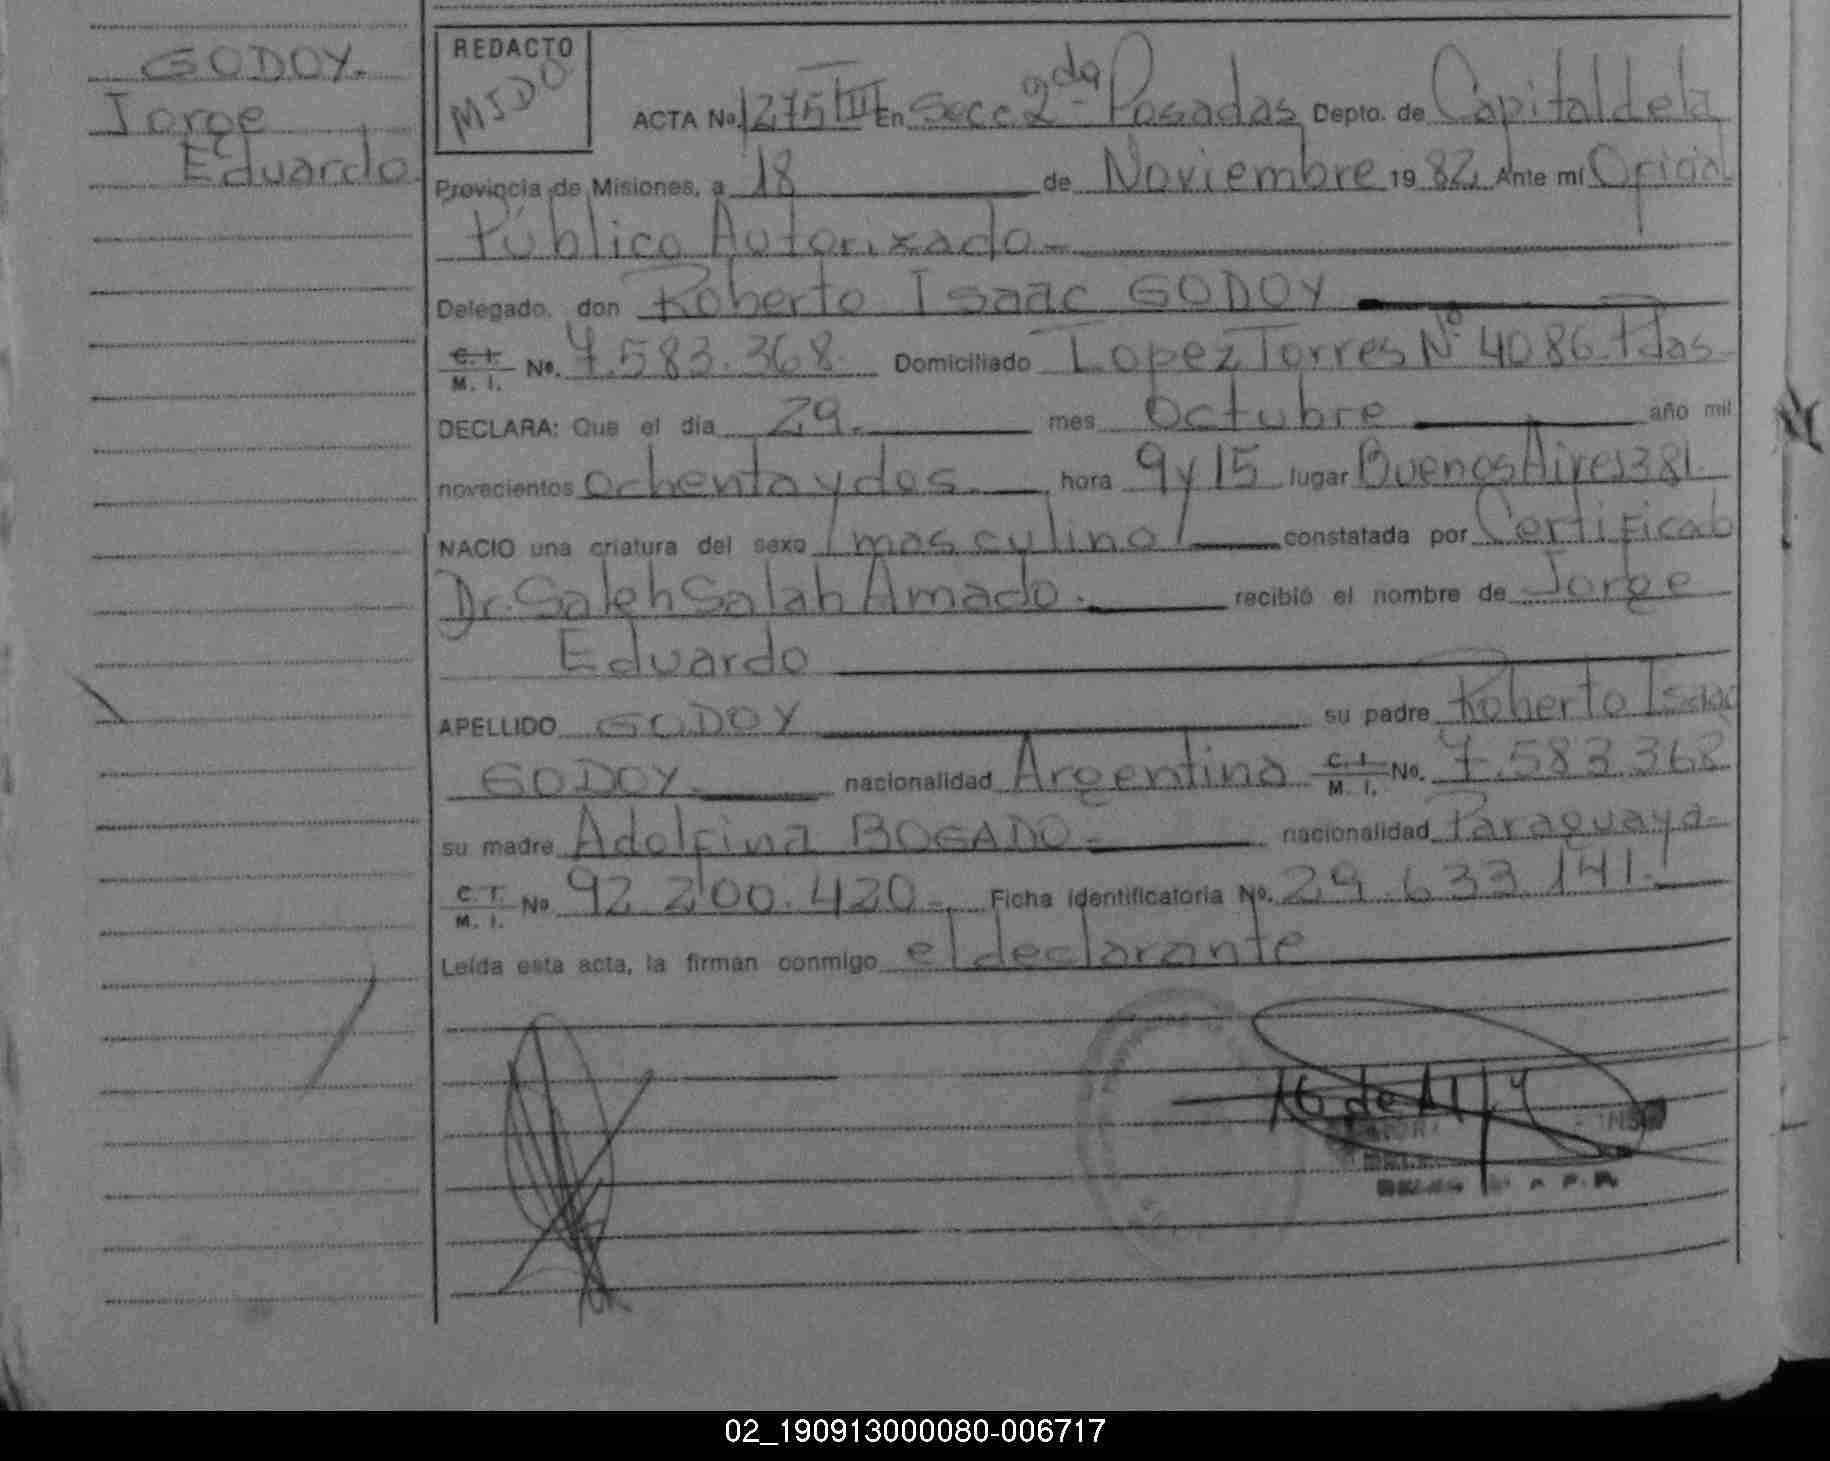 GODOY.
Jorge
Eduardo.
REDACTO
MIDO
ACTA No. 1275 III En Secc 2da Posadas Depto. de Capital de la
Provincia de Misiones, a 18 de Noviembre 1982 Ante mí Oficial
Público Autorizado
Delegado, don Roberto Isaac GODOY
C. I. M. I. No. 7.583.368. Domiciliado Lopez Torres Nº 4086. Pdas.
DECLARA: Que el día 29. mes octubre año mil
novecientos ochenta y dos. hora 9 y 15 lugar Buenos Aires 381.
NACIO una criatura del sexo /masculino/ constatada por Certificado
Dr. Saleh Salah Amado. recibió el nombre de Jorge
Eduardo
APELLIDO GODOY su padre Roberto Isaac
GODOY. nacionalidad Argentina C. I. M. I. No. 7.583.368
su madre Adolfina BOGADO nacionalidad Paraguaya
C. I. M. I. No 92.200.420 Ficha identificatoria No. 29.633.141.
Leída esta acta, la firman conmigo el declarante
02_190913000080-006717